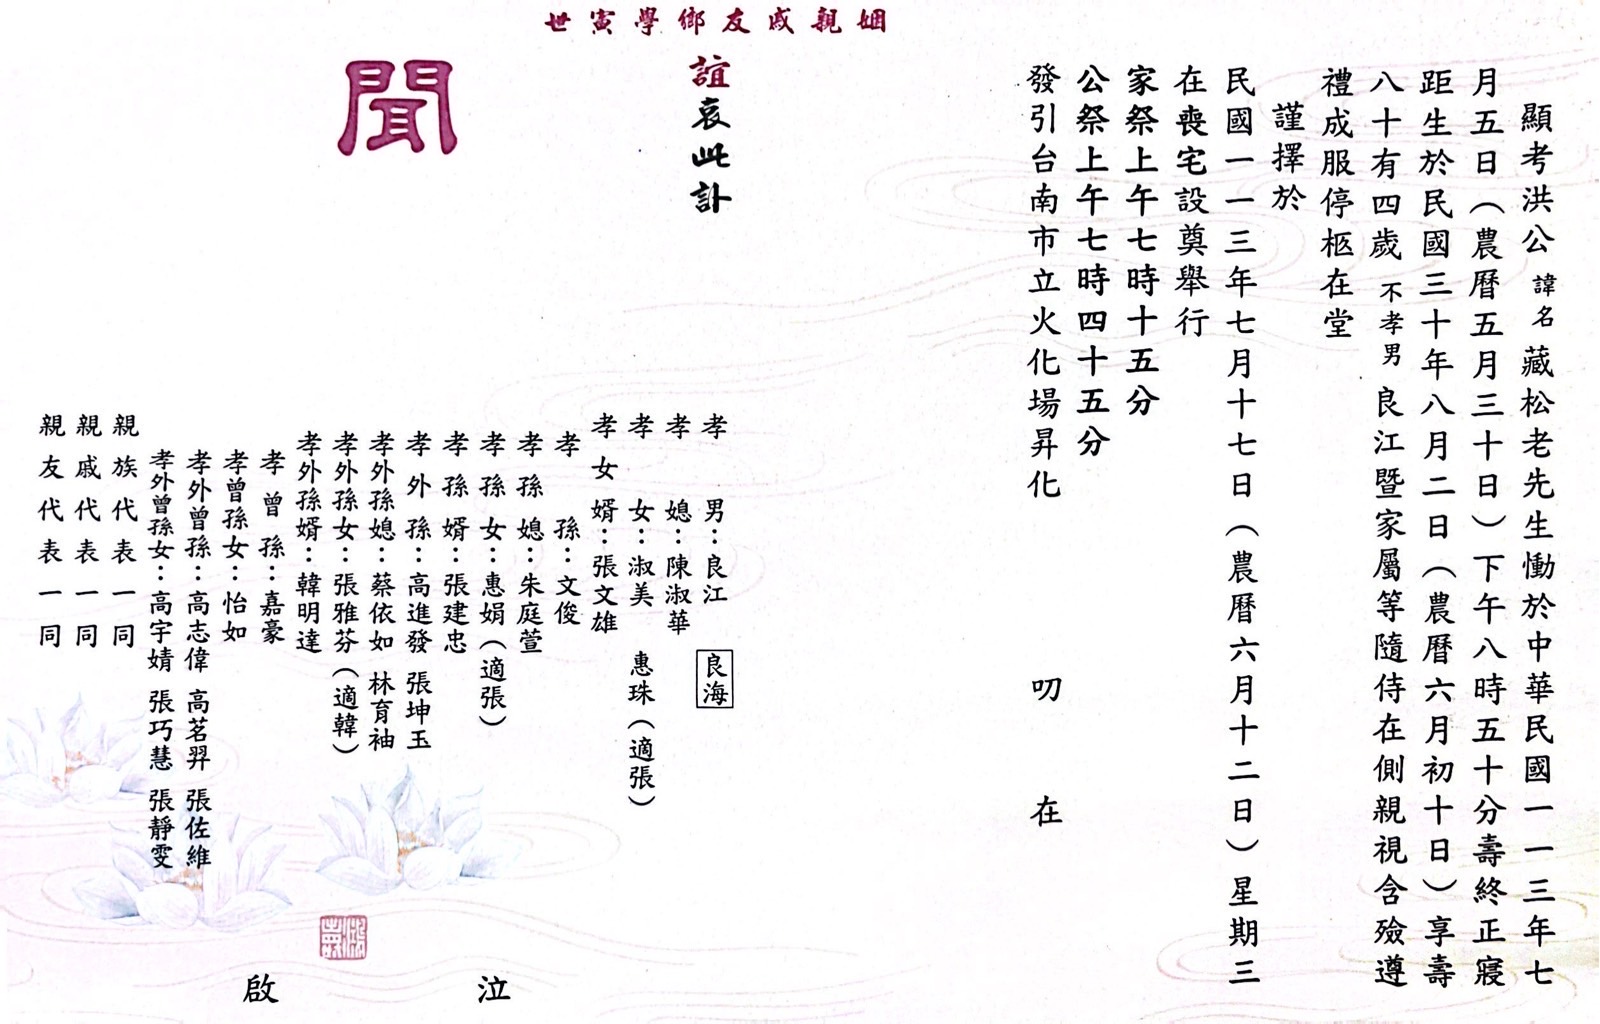 顯考洪公諱名藏松老先生慟於中華民國一一三年七
月五日（農曆五月三十日）下午八時五十分壽終正寢
距生於民國三十年八月二日（農曆六月初十日）享壽
八十有四歲不孝男良江暨家屬等隨侍在側親視含殮遵
禮成服停柩在堂
謹擇於
民國一一三年七月十七日（農曆六月十二日）星期三
在喪宅設奠舉行
家祭上午七時十五分
公祭上午七時四十五分
發引台南市立火化場昇化 叨在
姻親戚友鄉學寅世
誼哀此訃
聞
孝男：良江 良海
孝媳：陳淑華
孝女：淑美 惠珠（適張）
孝女婿：張文雄
孝孫：文俊
孝孫媳：朱庭萱
孝孫女：惠娟（適張）
孝孫婿：張建忠
孝外孫：高進發 張坤玉
孝外孫媳：蔡依如 林育袖
孝外孫女：張雅芬（適韓）
孝外孫婿：韓明達
孝曾孫：嘉豪
孝曾孫女：怡如
孝外曾孫：高志偉 高茗羿 張佐維
孝外曾孫女：高宇婧 張巧慧 張靜雯
親族代表一同
親戚代表一同
親友代表一同
泣啟